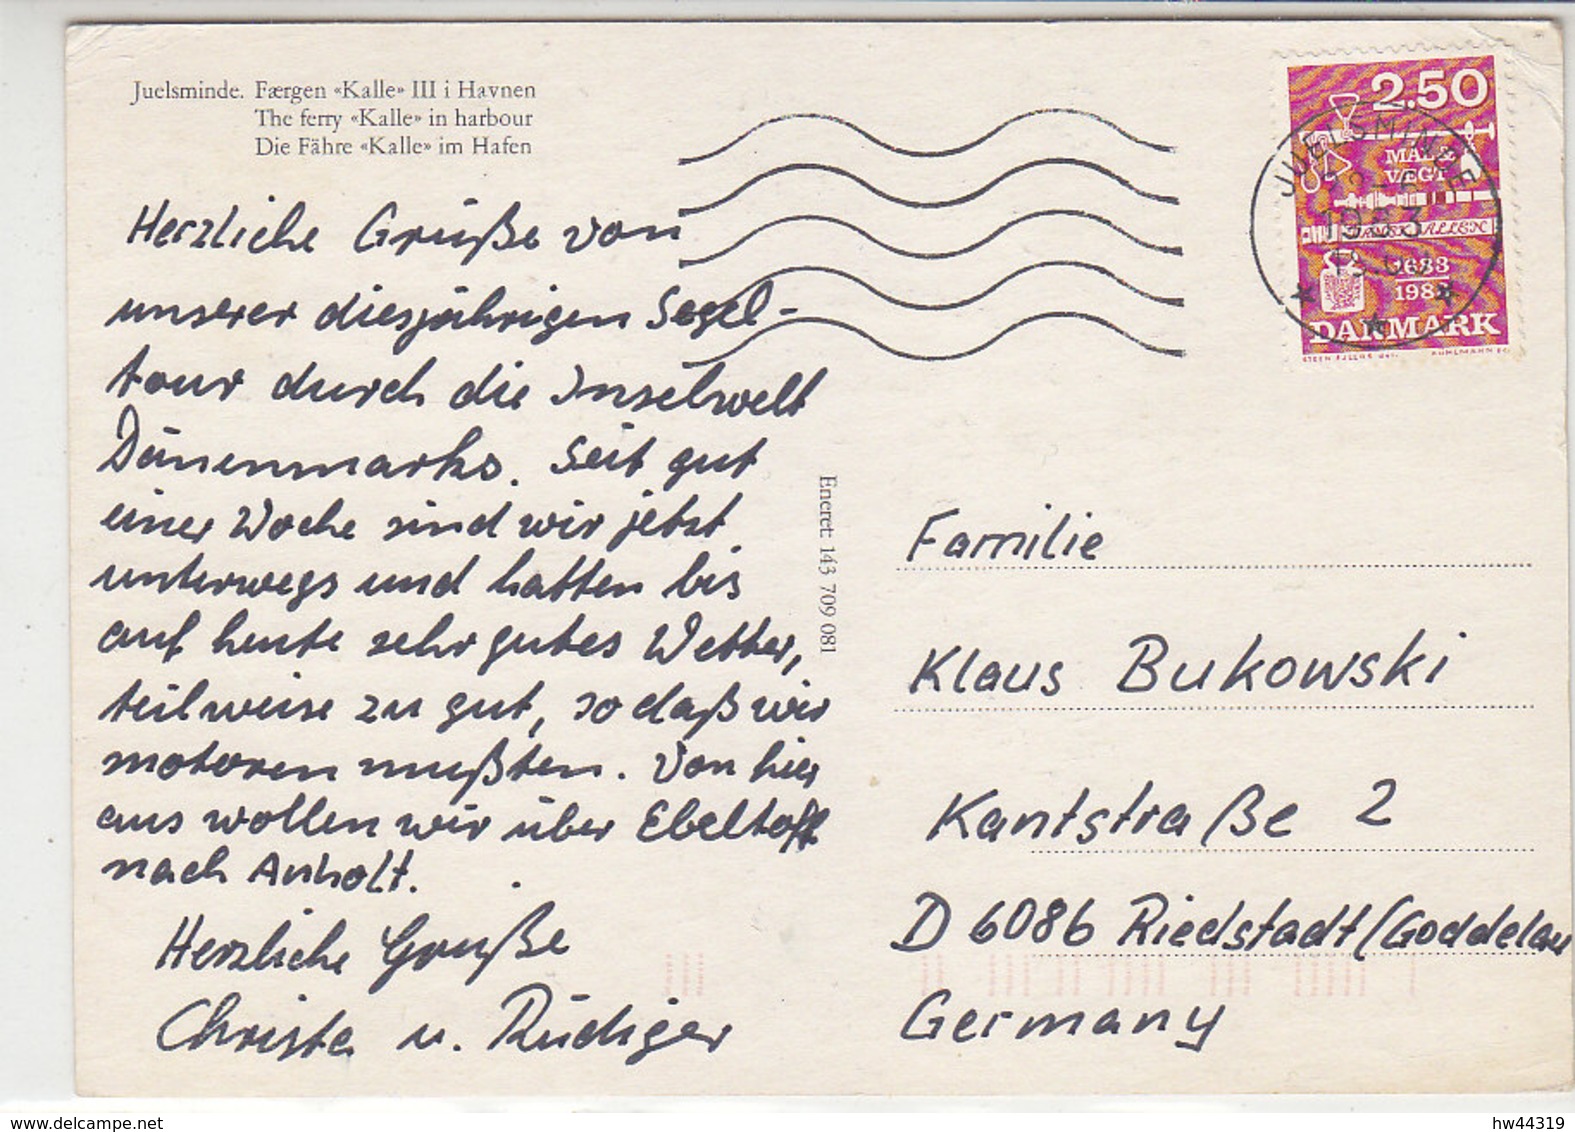 Juelsminde. Færgen «Kalle» III i Havnen
The ferry «Kalle» in harbour
Die Fähre «Kalle» im Hafen
Herzliche Grüße von
unserer diesjährigen Segel-
tour durch die Inselwelt
Dänemarks. Seit gut
einer Woche sind wir jetzt
unterwegs und hatten bis
auf heute sehr gutes Wetter,
teilweise zu gut, so daß wir
motoren mußten. Von hier
aus wollen wir über Ebeltoft
nach Anholt.
Herzliche Grüße
Christa u. Rüdiger
Eneret: 143 709 081
2.50
MÅL &
VÆGT
DANSK ALLEN
1683
1983
DANMARK
JUELSMINDE
1983
Familie
Klaus Bukowski
Kantstraße 2
D 6086 Riedstadt/Goddelau
Germany
www.delcampe.net
hw44319